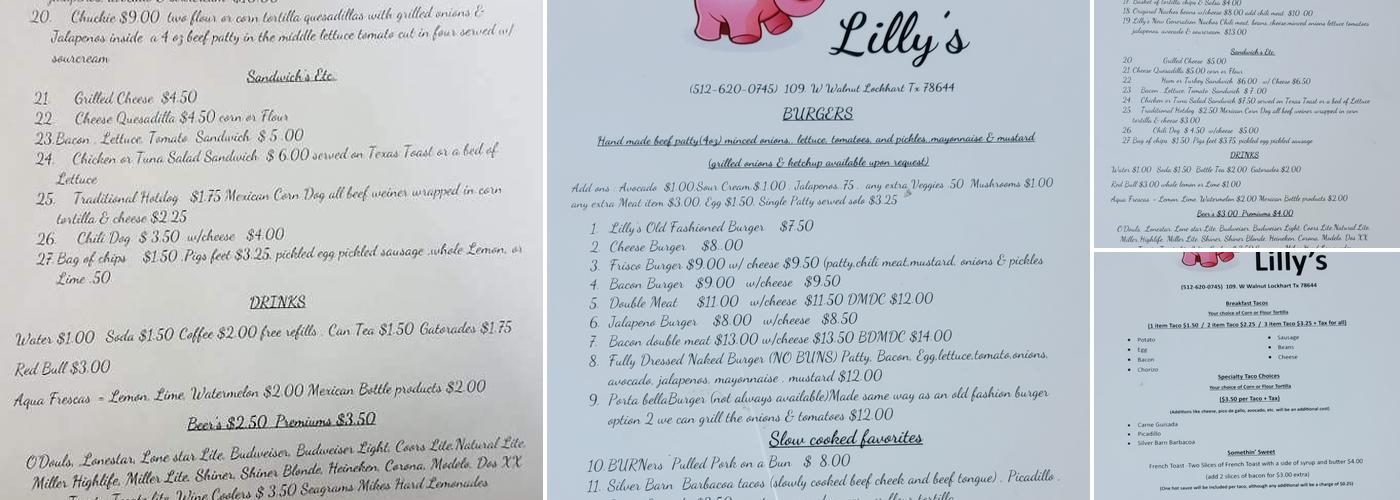 20. Chuckie $9.00 two flour or corn tortilla quesadillas with grilled onions &
Jalapenos inside a 4 oz beef patty in the middle lettuce tomato cut in four served w/
sourcream
Sandwich's Etc.
21. Grilled Cheese $4.50
22. Cheese Quesadilla $4.50 corn or Flour
23. Bacon, Lettuce, Tomato Sandwich $5.00
24. Chicken or Tuna Salad Sandwich $6.00 served on Texas Toast or a bed of
Lettuce
25. Traditional Hotdog $1.75 Mexican Corn Dog all beef weiner wrapped in corn
tortilla & cheese $2.25
26. Chili Dog $3.50 w/cheese $4.00
27. Bag of chips $1.50 Pigs feet $3.25, pickled egg pickled sausage ,whole Lemon, or
Lime .50
DRINKS
Water $1.00 Soda $1.50 Coffee $2.00 free refills . Can Tea $1.50 Gatorades $1.75
Red Bull $3.00
Aqua Frescas = Lemon, Lime, Watermelon $2.00 Mexican Bottle products $2.00
Beer's $2.50 Premiums $3.50
O'Douls, Lonestar, Lone star Lite, Budweiser, Budweiser Light, Coors Lite,Natural Lite,
Miller Highlife, Miller Lite, Shiner, Shiner Blonde, Heineken, Corona, Modelo, Dos XX
Wine Coolers $3.50 Seagrams Mikes Hard Lemonades
Lilly's
(512-620-0745) 109. W Walnut Lockhart Tx 78644
BURGERS
Hand made beef patty(4oz) minced onions,, lettuce, tomatoes, and pickles,mayonnaise & mustard
(grilled onions & ketchup available upon request)
Add ons . Avocado $1.00,Sour Cream,$1.00 , Jalapenos,.75 , any extra Veggies .50 Mushrooms $1.00
any extra Meat item $3.00, Egg $1.50, Single Patty served solo $3.25
1. Lilly's Old Fashioned Burger $7.50
2. Cheese Burger $8.00
3. Frisco Burger $9.00 w/ cheese $9.50 (patty,chili meat,mustard, onions & pickles
4. Bacon Burger $9.00 w/cheese $9.50
5. Double Meat $11.00 w/cheese $11.50 DMDC $12.00
6. Jalapeno Burger $8.00 w/cheese $8.50
7. Bacon double meat $13.00 w/cheese $13.50 BDMDC $14.00
8. Fully Dressed Naked Burger (NO BUNS) Patty, Bacon, Egg,lettuce,tomato,onions,
avocado, jalapenos, mayonnaise , mustard $12.00
9. Porta bellaBurger (not always available)Made same way as an old fashion burger
option 2 we can grill the onions & tomatoes $12.00
Slow cooked favorites
10. BURNers Pulled Pork on a Bun $ 8.00
11. Silver Barn Barbacoa tacos (slowly cooked beef cheek and beef tongue) , Picadillo ,
17. Basket of tortilla chips & Salsa $4.00
18. Original Nachos beans w/cheese $8.00 add chili meat $10.00
19. Lilly's New Generation Nachos Chili meat, beans,cheese,minced onions lettuce tomatoes
jalapenos, avocado & sourcream $13.00
Sandwich's Etc.
20. Grilled Cheese $5.00
21. Cheese Quesadilla $5.00 corn or Flour
22. Ham or Turkey Sandwich $6.00 w/ Cheese $6.50
23. Bacon, Lettuce, Tomato Sandwich $7.00
24. Chicken or Tuna Salad Sandwich $7.50 served on Texas Toast or a bed of Lettuce
25. Traditional Hotdog $2.50 Mexican Corn Dog all beef weiner wrapped in corn
tortilla & cheese $3.00
26. Chili Dog $4.50 w/cheese $5.00
27. Bag of chips $1.50 Pigs feet $3.75, pickled egg pickled sausage
DRINKS
Water $1.00 Soda $1.50 Bottle Tea $2.00 Gatorades $2.00
Red Bull $3.00 whole lemon or Lime $1.00
Aqua Frescas = Lemon, Lime, Watermelon $2.00 Mexican Bottle products $2.00
Beer's $3.00 Premiums $4.00
O'Douls, Lonestar, Lone star Lite, Budweiser, Budweiser Light, Coors Lite,Natural Lite,
Miller Highlife, Miller Lite, Shiner, Shiner Blonde, Heineken, Corona, Modelo, Dos XX
Lilly's
(512-620-0745) 109. W Walnut Lockhart Tx 78644
Breakfast Tacos
Your choice of Corn or Flour Tortilla
(1 item Taco $1.50 / 2 item Taco $2.25 / 3 item Taco $3.25 + Tax for all)
• Potato
• Egg
• Bacon
• Chorizo
• Sausage
• Beans
• Cheese
Specialty Taco Choices
Your choice of Corn or Flour Tortilla
($3.50 per Taco + Tax)
(Additions like cheese, pico de gallo, avocado, etc. will be an additional cost)
• Carne Guisada
• Picadillo
• Silver Barn Barbacoa
Somethin' Sweet
French Toast -Two Slices of French Toast with a side of syrup and butter $4.00
(add 2 slices of bacon for $3.00 extra)
(One hot sauce will be included per taco, although any additional will be a charge of $0.25)